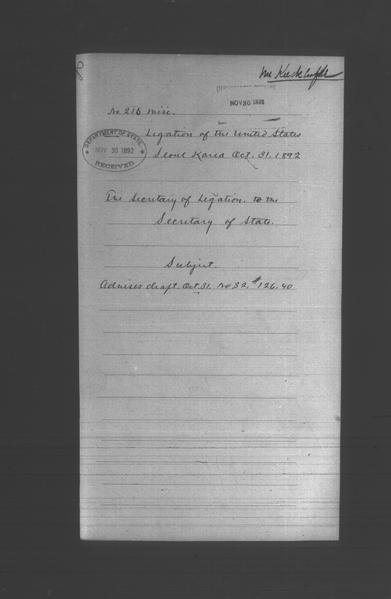 Mr
NOV 30 1892
No 216 misc.
Legation of the United States
DEPARTMENT OF STATE,
NOV 30 1892
RECEIVED
Seoul Korea Oct. 31. 1892
The Secretary of Legation. to the
Secretary of State.
Subject.
Advises draft Oct 31. No 32. $126.40